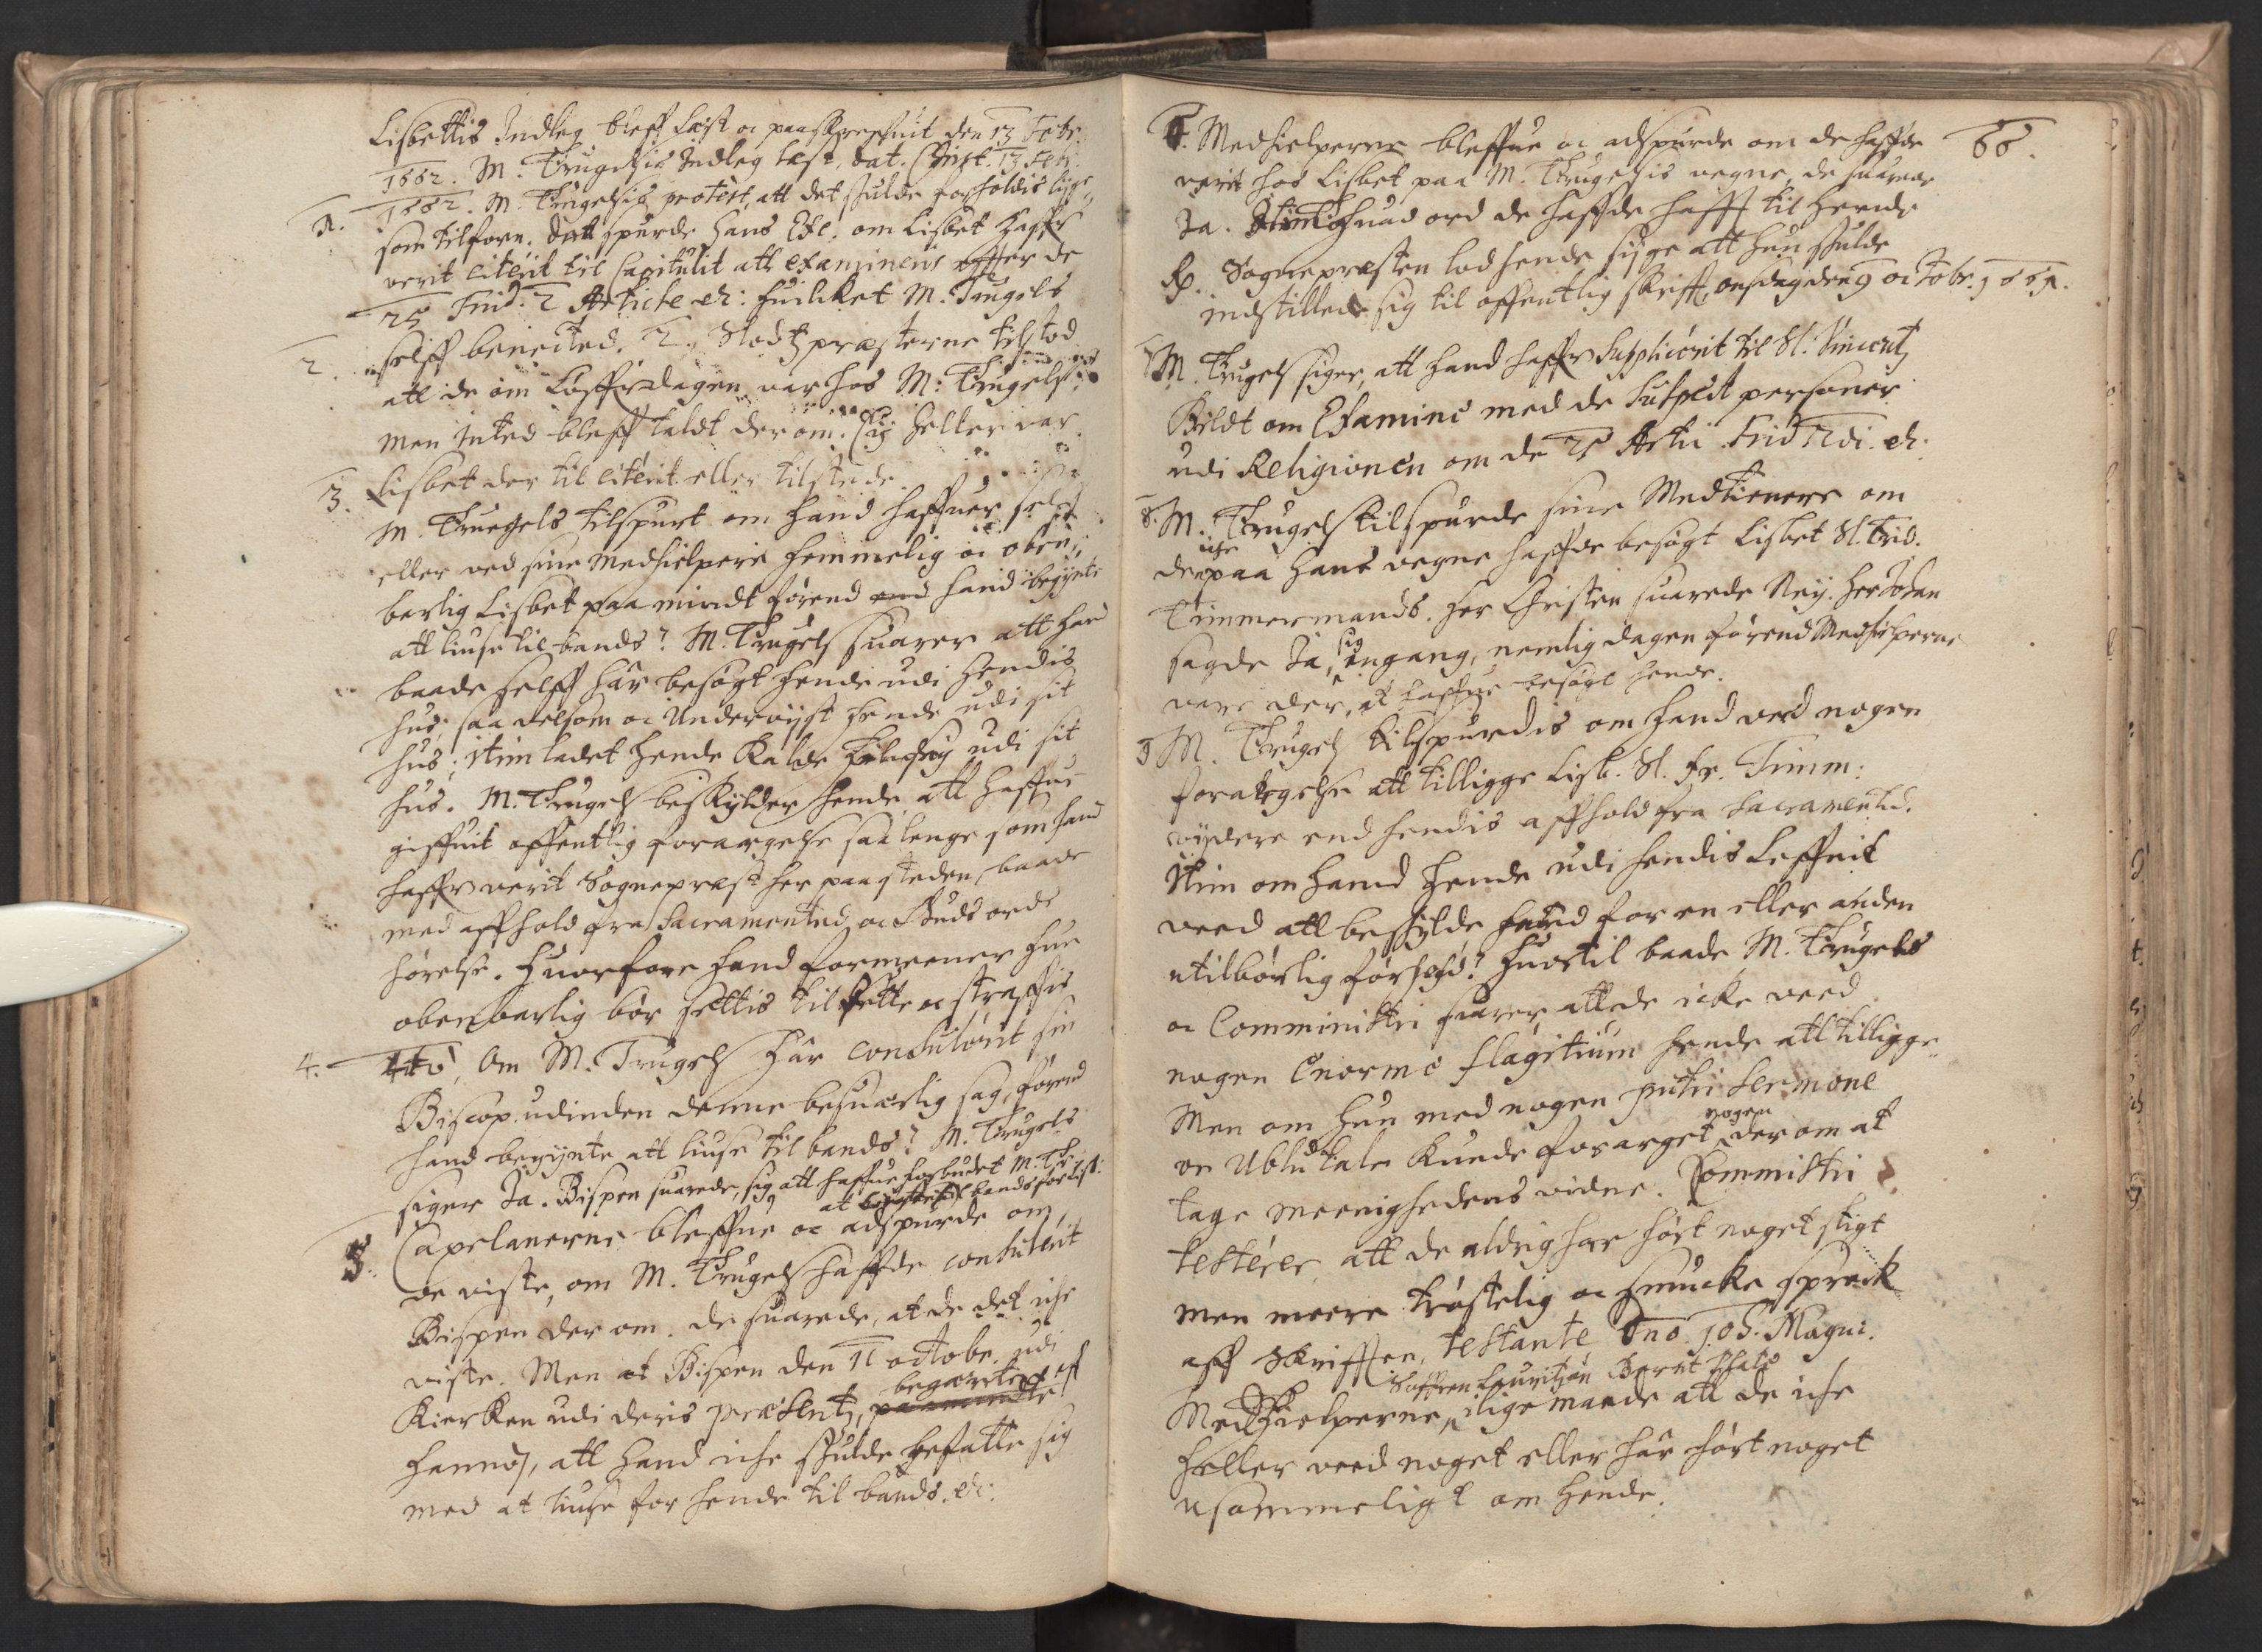 Lisbettis Indleg bleff læst oc paaskreffuit den 13 Febr.
1662. M. Trugelsis Indleg læst, dat. Christ. 13 Febr.
1662. M. Trugelsis protest, att det skulde forholdis lige
1. som tilforn. Datt spurde Hans Exc. om Lisbet haffr
verit citerit til Capitulit att examineris effter de
25 Frid. 2 Article etc: huilket M. Trugels
2. selff benected. 2. Slodtzpræsterne tilstod
att de om Løffrdagen var hos M. Trugels
men inted bleff taldt der om. Eij heller var
Lisbet der til citerit eller tilstæde.
3. M. Truegels tilspurt om hand haffuer selff
eller ved sine Medhielpere hemmelig oc oben-
barlig Lisbet paamindt førend hand begynte
att liuse til bands? M. Trugels suarer att hand
baade selff hâr besøgt hende udi hendis
hus, saa velsom oc Underviist hende udi sit
hus; Item ladet hende kalde til sig udi sit
hus. M. Trugels beskylder hende att haffue
giffuit offentlig forargelse saa lenge som hand
haffr verit Sognepræst her paa steden, baade
med affhold fra Sacramentet oc Guds ords
hørelse. Huorfore hand formeener hun
obenbarlig bør settis til rette oc straffis
4. 4to, Om M. Trugels hâr consulerit sin
Biscop udinden denne besuærlig sag, førend
hand begynte att liuse til bands? M. Trugels
siger Ja. Bispen suarede, sig att haffue forbudet M. Tr.
at liuse til bands for Lisb.
5. Capelanerne bleffue oc adspurde om
de viste, om M. Trugels haffde consulerit
Bispen der om. De suarede, at de det iche
viste. Men at Bispen den 11 octobr. udi
Kierken udi deris præsentz, begærete aff
hannom, att hand iche skulde befatte sig
med at liuse for hende til bands. etc.
66.
6. Medhielperne bleffue oc adspurde om de haffde
verit hos Lisbet paa M. Trugelsis vegne, de suarede
Ja. Item huad ord de haffde hafft til hende
Rp. Sognepræsten lod hende sige att hun skulde
indstillede sig til offentlig skrifft, onsdag den 9 octobr. 1661.
7 M. Trugels siger, att hand haffr Supplicerit til Sl. Vincentz
Bildt om Examine med de suspect personer
udi Religionen om de 25 Artic. Frid 2di. etc:
8. M. Trugels tilspurde sine Medtienere om
de iche paa hans vegne haffde besøgt Lisbet Sl. Frid.
Timmermands. Her Christen suarede Neij. Her Johan
sagde Ja, sig engang, nemlig dagen førend Medhielperne
vare der, at haffue besøgt hende.
9 M. Trugels tilspurdis om hand ved nogen
forargelse att tillegge Lisb. Sl. Fr. Timm:
videre end hendis affhold fra Sacramentid.
Item om hand hende udi hendis Leffnit
veed att beskylde for en eller anden
utilbørlig forhold? Huortil baade M. Trugels
oc Comministri suarer, att de icke veed
nogen Enorme flagitium hende att tillegge
Men om hun med nogen putri sermone
oc Ublu tale kunde forarget nogen der om at
tage meenighedens vidne. Commistri
testerer, att de aldrig har hørt noget sligt
men meere trøstelig oc smucke sprock
aff Skrifften, testante Dno. Joh. Magni.
Søffren Lauritzøn Bernt
Medhielperne, ligemaade att de iche
heller veed noget eller hâr hørt noget
usømmeligt om hende.